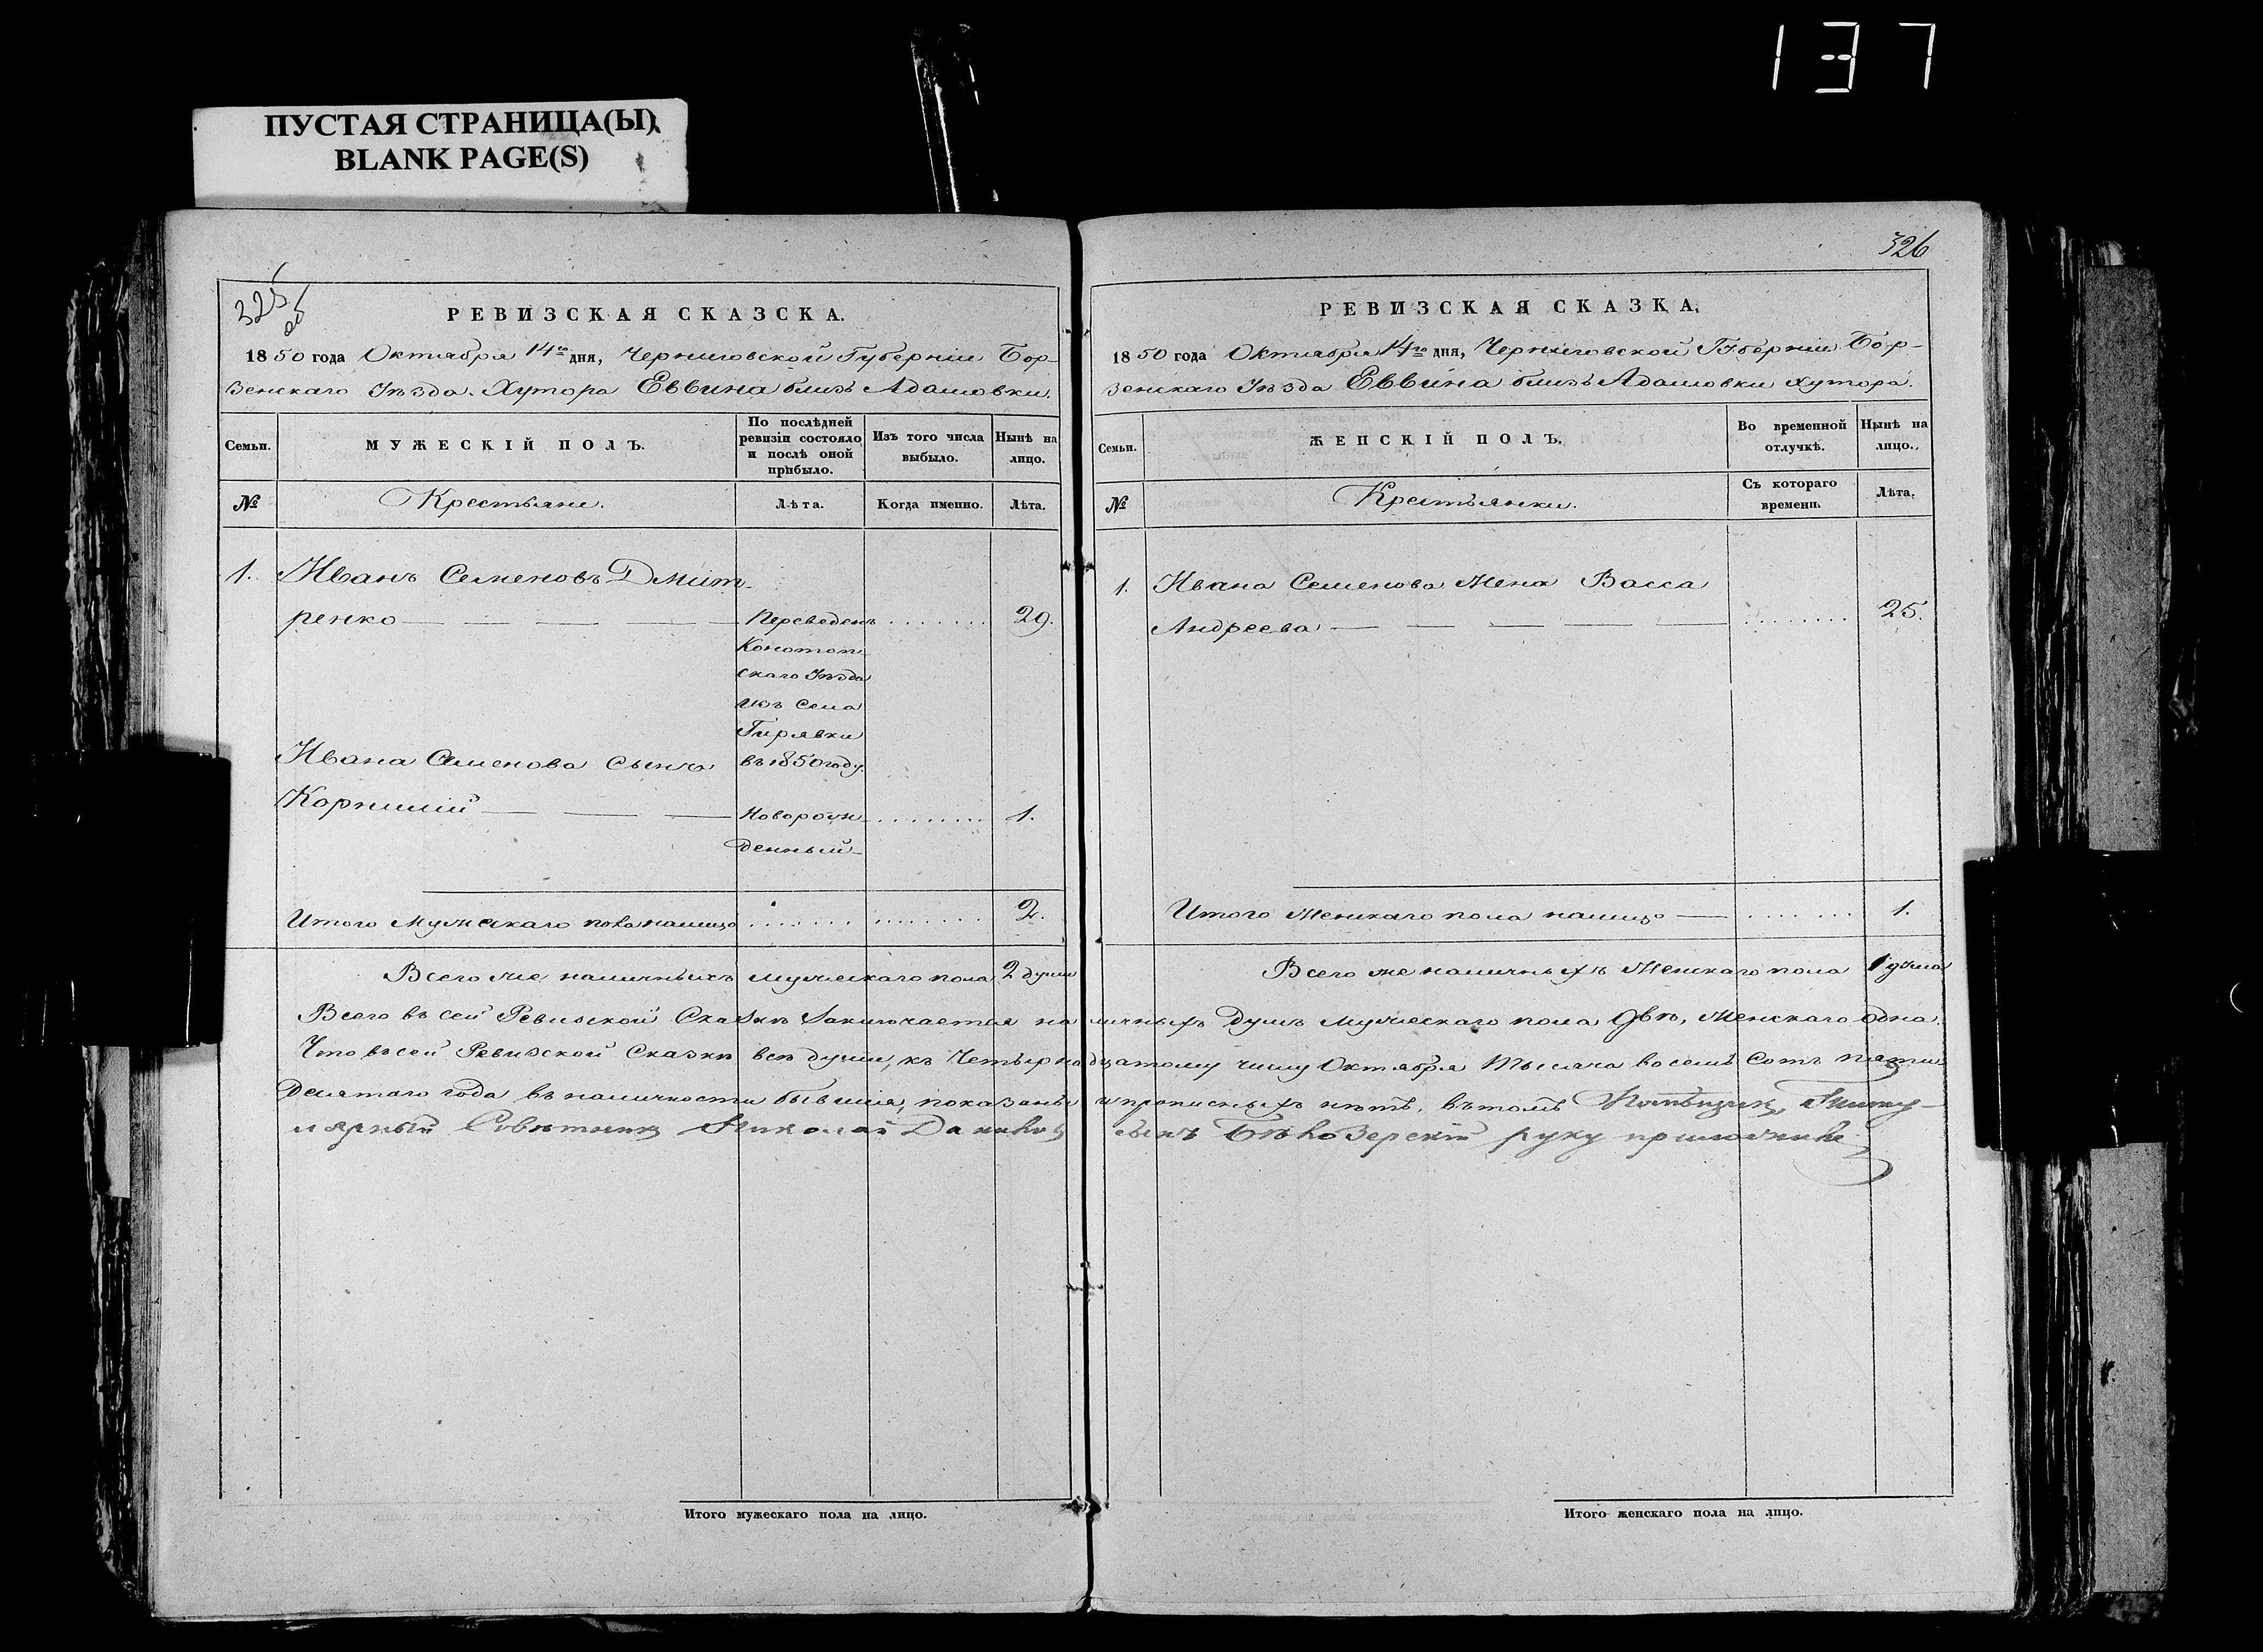 137
ПУСТАЯ СТРАНИЦА(Ы)
BLANK PAGE(S)
325
об
РЕВИЗСКАЯ СКАЗСКА.
1850 года Октября 14го дня, Черниговской Губерніи Бор-
зенскаго Уѣзда. Хутора Еввина близъ Адамовки.
Семьи.
МУЖЕСКІЙ ПОЛЪ.
По послѣдней
ревизіи состояло
и послѣ оной
прибыло.
Изъ того числа
выбыло.
Нынѣ на
лицо.
№
Крестьяне.
Лѣта.
Когда именно.
Лѣта.
1. Иванъ Семеновъ Дмит-
ренко — Переведенъ ....... 29.
Конотоп-
скаго Уѣзда
изъ Села
Гирявки
Ивана Семенова Сынъ въ 1850 году.
Корнилій —Новорож- ........ 1.
денный
Итого Мужескаго пола налицо ....... ........ 2.
Всего же наличныхъ мужескаго пола 2 души
326
РЕВИЗСКАЯ СКАЗКА.
1850 года Октября 14го дня, Черниговской Губерніи Бор-
зенскаго Уѣзда Еввина близъ Адамовки хутора.
Семьи.
ЖЕНСКІЙ ПОЛЪ.
Во временной
отлучкѣ.
Нынѣ на
лицо.
№
Крестьянки.
Съ котораго
времени.
Лѣта.
1. Ивана Семенова Жена Васса
Андреева — ........ 25.
Итого Женскаго пола налицо — ....... 1.
Всего же наличныхъ Женскаго пола 1 душа
Всего въ сей Ревизской Сказкѣ Заключается наличныхъ душъ мужескаго пола двѣ, Женскаго одна.
Что въ сей Ревизской Сказкѣ всѣ души, къ Четырнадцатому числу Октября Тысяча восемь Сотъ пяти-
десятаго года въ наличности бывшія, показаны и прописныхъ нѣтъ, въ томъ Титу-
лярный Совѣтникъ Николай Данилов сынъ Бѣлозерскій руку приложилъ
Итого мужескаго пола на лицо.
Итого женскаго пола на лицо.